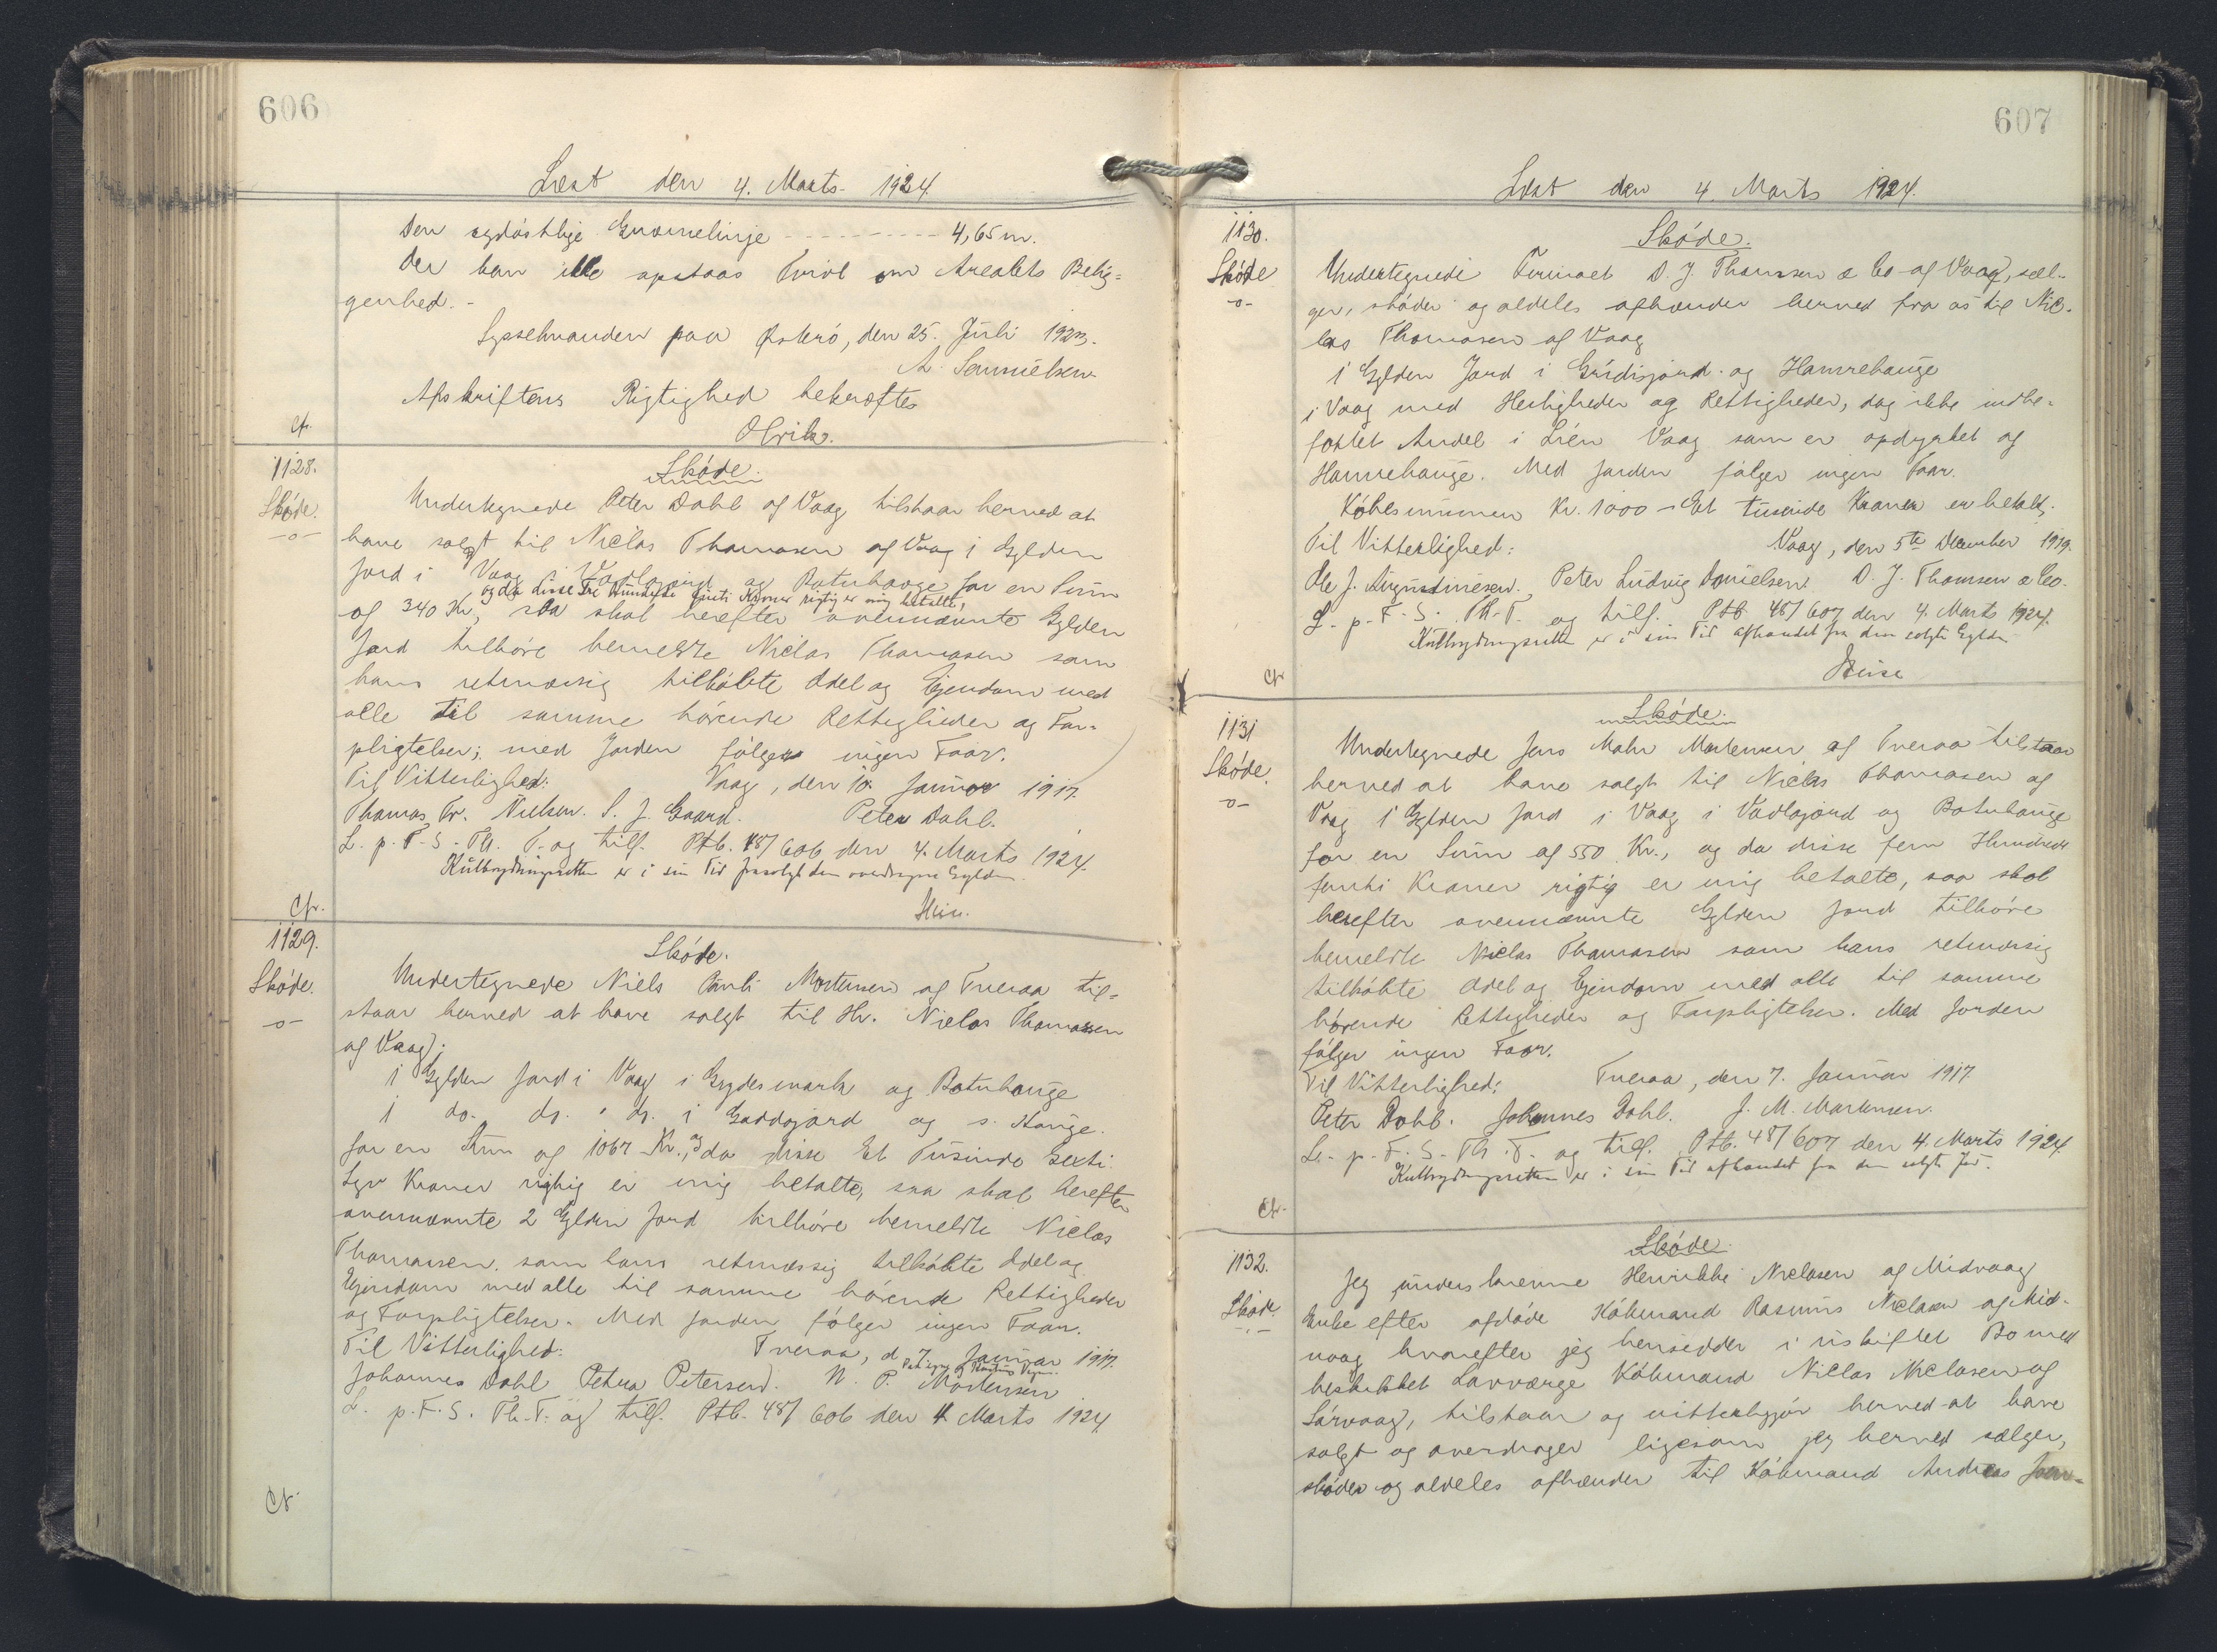 606
Læst den 4. Marts 1924.
Den sydöstlige Grænselinje - - - - - - - - - 4,65 m.
Der kan ikke opstaas Tvivl om Arealets Belig=
genhed. -
Sysselmanden paa Østerö, den 25. Juli 1923.
A. Samuelsen
Afskriftens Rigtighed bekræftes
Cfr.
1128.
Sköde.
-o-
Sköde.
Undertegnede Peter Dahl af Vaag tilstaar herved at
have solgt til Niclas Thomasen af Vaag 1 Gylden
Jord i Vaag i Vadlajord og Botnhauge for en Sum
og da disse Tre Hundrede firti Kroner rigtig er mig betalte,
af 340 Kr, saa skal herefter ovennævnte Gylden
Jord tilhöre bemeldte Niclas Thomasen som
hans retmæssig tilköbte Odel og Ejendom med
alle til samme hörende Rettigheder og For=
pligtelser; med Jorden fölger ingen Faar.
Til Vitterlighed: Vaag, den 10. Januar 1917.
Thomas Fr. Nielsen. S. J. Gaard. Peter Dahl.
L. p. F. S. Th. T. og tilf. Ptb. 48/606 den 4. Marts 1924.
Kulbrydningsretten er i sin Tid frasolgt den overdragne Gylden.
Cfr.
1129.
Sköde.
-o-
Sköde.
Undertegnede Niels Pauli Mortensen af Tveraa til=
staar herved at have solgt til Hr. Niclas Thomasen
af Vaag;
1 Gylden Jord i Vaag i Grydesmark og Botnhauge
1 do. do. " do. i Gaddajord og s. Hauge.
for en Sum af 1067 Kr., og da disse Et Tusinde Sexti
Syv Kroner rigtig er mig betalte, saa skal herefter
ovennævnte 2 Gylden Jord tilhöre bemeldte Niclas
Thomasen, som hans retmæssig tilköbte Odel og
Ejendom med alle til samme hörende Rettigheder
og Forpligtelser. Med Jorden fölger ingen Faar.
Til Vitterlighed: Tveraa, d. 7. Januar 1917.
Johannes Dahl Petra Petersen. N. P. Mortensen
L. p. F. S. Th. T. og tilf. Ptb. 48/606 den 4. Marts 1924.
Cfr.
607
Læst den 4. Marts 1924.
1130.
Sköde
-o-
Sköde.
Undertegnede Firmaet D. J. Thomsen & Co af Vaag, sæl-
ger, sköder og aldeles afhænder herved fra os til Nic-
las Thomasen af Vaag
1 Gylden Jord i Grúdisjord og Hamrehauge
i Vaag med Herligheder og Rettigheder, dog ikke indbe-
fattet Andel i Lién Vaag som er opdyrket og
Hamrehauge. Med Jorden fölger ingen Faar.
Köbesummen Kr. 1000 - Et tusinde Kroner er betalt.
Til Vitterlighed: Vaag, den 5te December 1919.
Ole J. Augustinusen. Peter Ludvig Danielsen. D. J. Thomsen & Co.
L. p. F. S. Th. T. og tilf. Ptb. 48/607 den 4. Marts 1924.
Kulbrydningsretten er i sin Tid afhændet fra den solgte Gylden.
Cfr
1131
Sköde.
-o-
Sköde.
Undertegnede Jens Mohr Mortensen af Tveraa tilstaar
herved at have solgt til Niclas Thomasen af
Vaag 1 Gylden Jord i Vaag i Vadlajord og Botnhauge
for en Sum af 550 Kr., og da disse fem Hundrede
femti Kroner rigtig er mig betalte, saa skal
herefter ovennævnte Gylden Jord tilhöre
bemeldte Niclas Thomasen som hans retmæssig
tilköbte Odel og Ejendom med alle til samme
hörende Rettigheder og Forpligtelser. Med Jorden
fölger ingen Faar.
Til Vitterlighed: Tveraa, den 7. Januar 1917.
Peter Dahl. Johannes Dahl. J. M. Mortensen.
L. p. F. S. Th. T. og tilf. Ptb. 48/607 den 4. Marts 1924.
Kulbrydningsretten er i sin Tid afhændet fra den solgte Jord.
Cfr.
1132.
Sköde
Sköde.
Jeg underskrevne Henrikke Niclasen af Midvaag
Enke efter afdöde Köbmand Rasmus Niclasen af Mid-
vaag hvorefter jeg hensidder i uskiftet Bo med
beskikket Lavværge Köbmand Niclas Niclasen af
Sörvaag, tilstaar og vitterliggör herved at have
solgt og overdrager ligesom jeg herved sælger,
sköder og aldeles afhænder til Köbmand Andreas